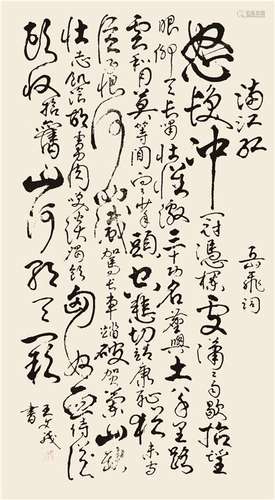 滿江紅
岳飛詞
怒髮冲冠憑欄處瀟瀟雨歇抬望
眼仰天長嘯壯懷激三十功名塵與土八千里路
雲和月莫等閒白了少年頭空悲切靖康恥猶未雪
臣子恨何時滅駕長車踏破賀蘭山缺
壯志飢餐胡虜肉笑談渴飲匈奴血待從
頭收拾舊山河朝天闕
書